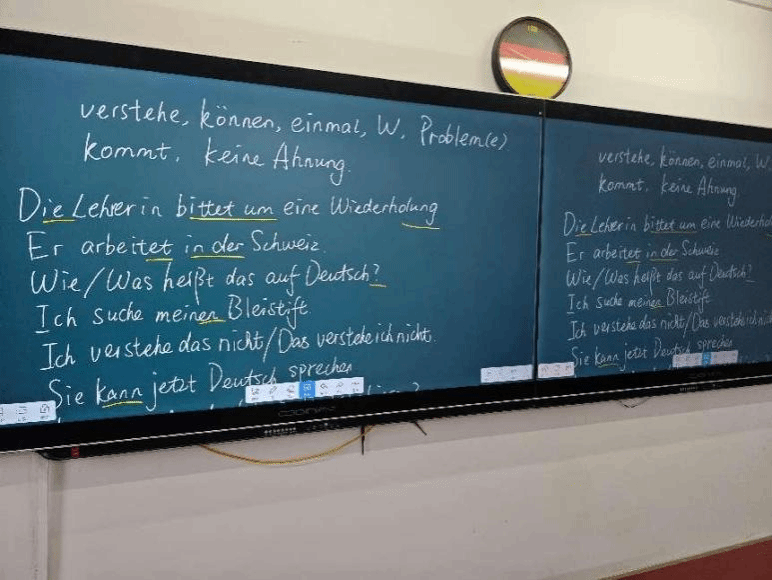 verstehe, können, einmal, W, Problem(e)
kommt, keine Ahnung.
Die Lehrerin bittet um eine Wiederholung
Er arbeitet in der Schweiz.
Wie/Was heißt das auf Deutsch?
Ich suche meinen Bleistift
Ich verstehe das nicht/Das verstehe ich nicht.
Sie kann jetzt Deutsch sprechen
verstehe, können, einmal, W
kommt, keine Ahnung
Die Lehrerin bittet um eine
Er arbeitet in der Schweiz
Wie/Was heißt das auf Deutsch?
Ich suche meinen Bleistift
Ich verstehe das nicht/Das verstehe ich nicht
Sie kann jetzt Deutsch sprechen